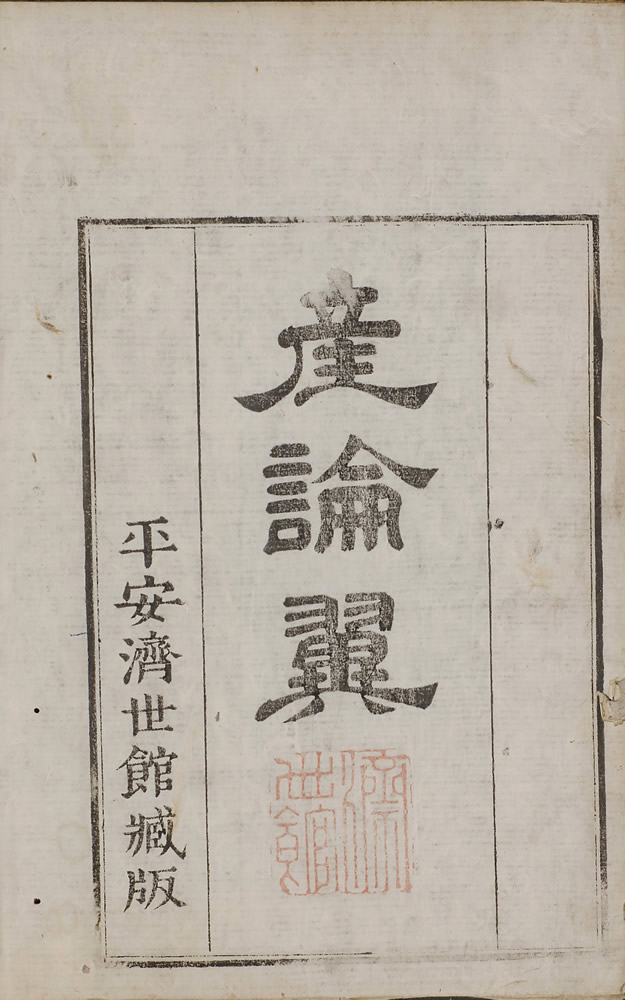 產論翼
平安濟世館藏版
濟世館